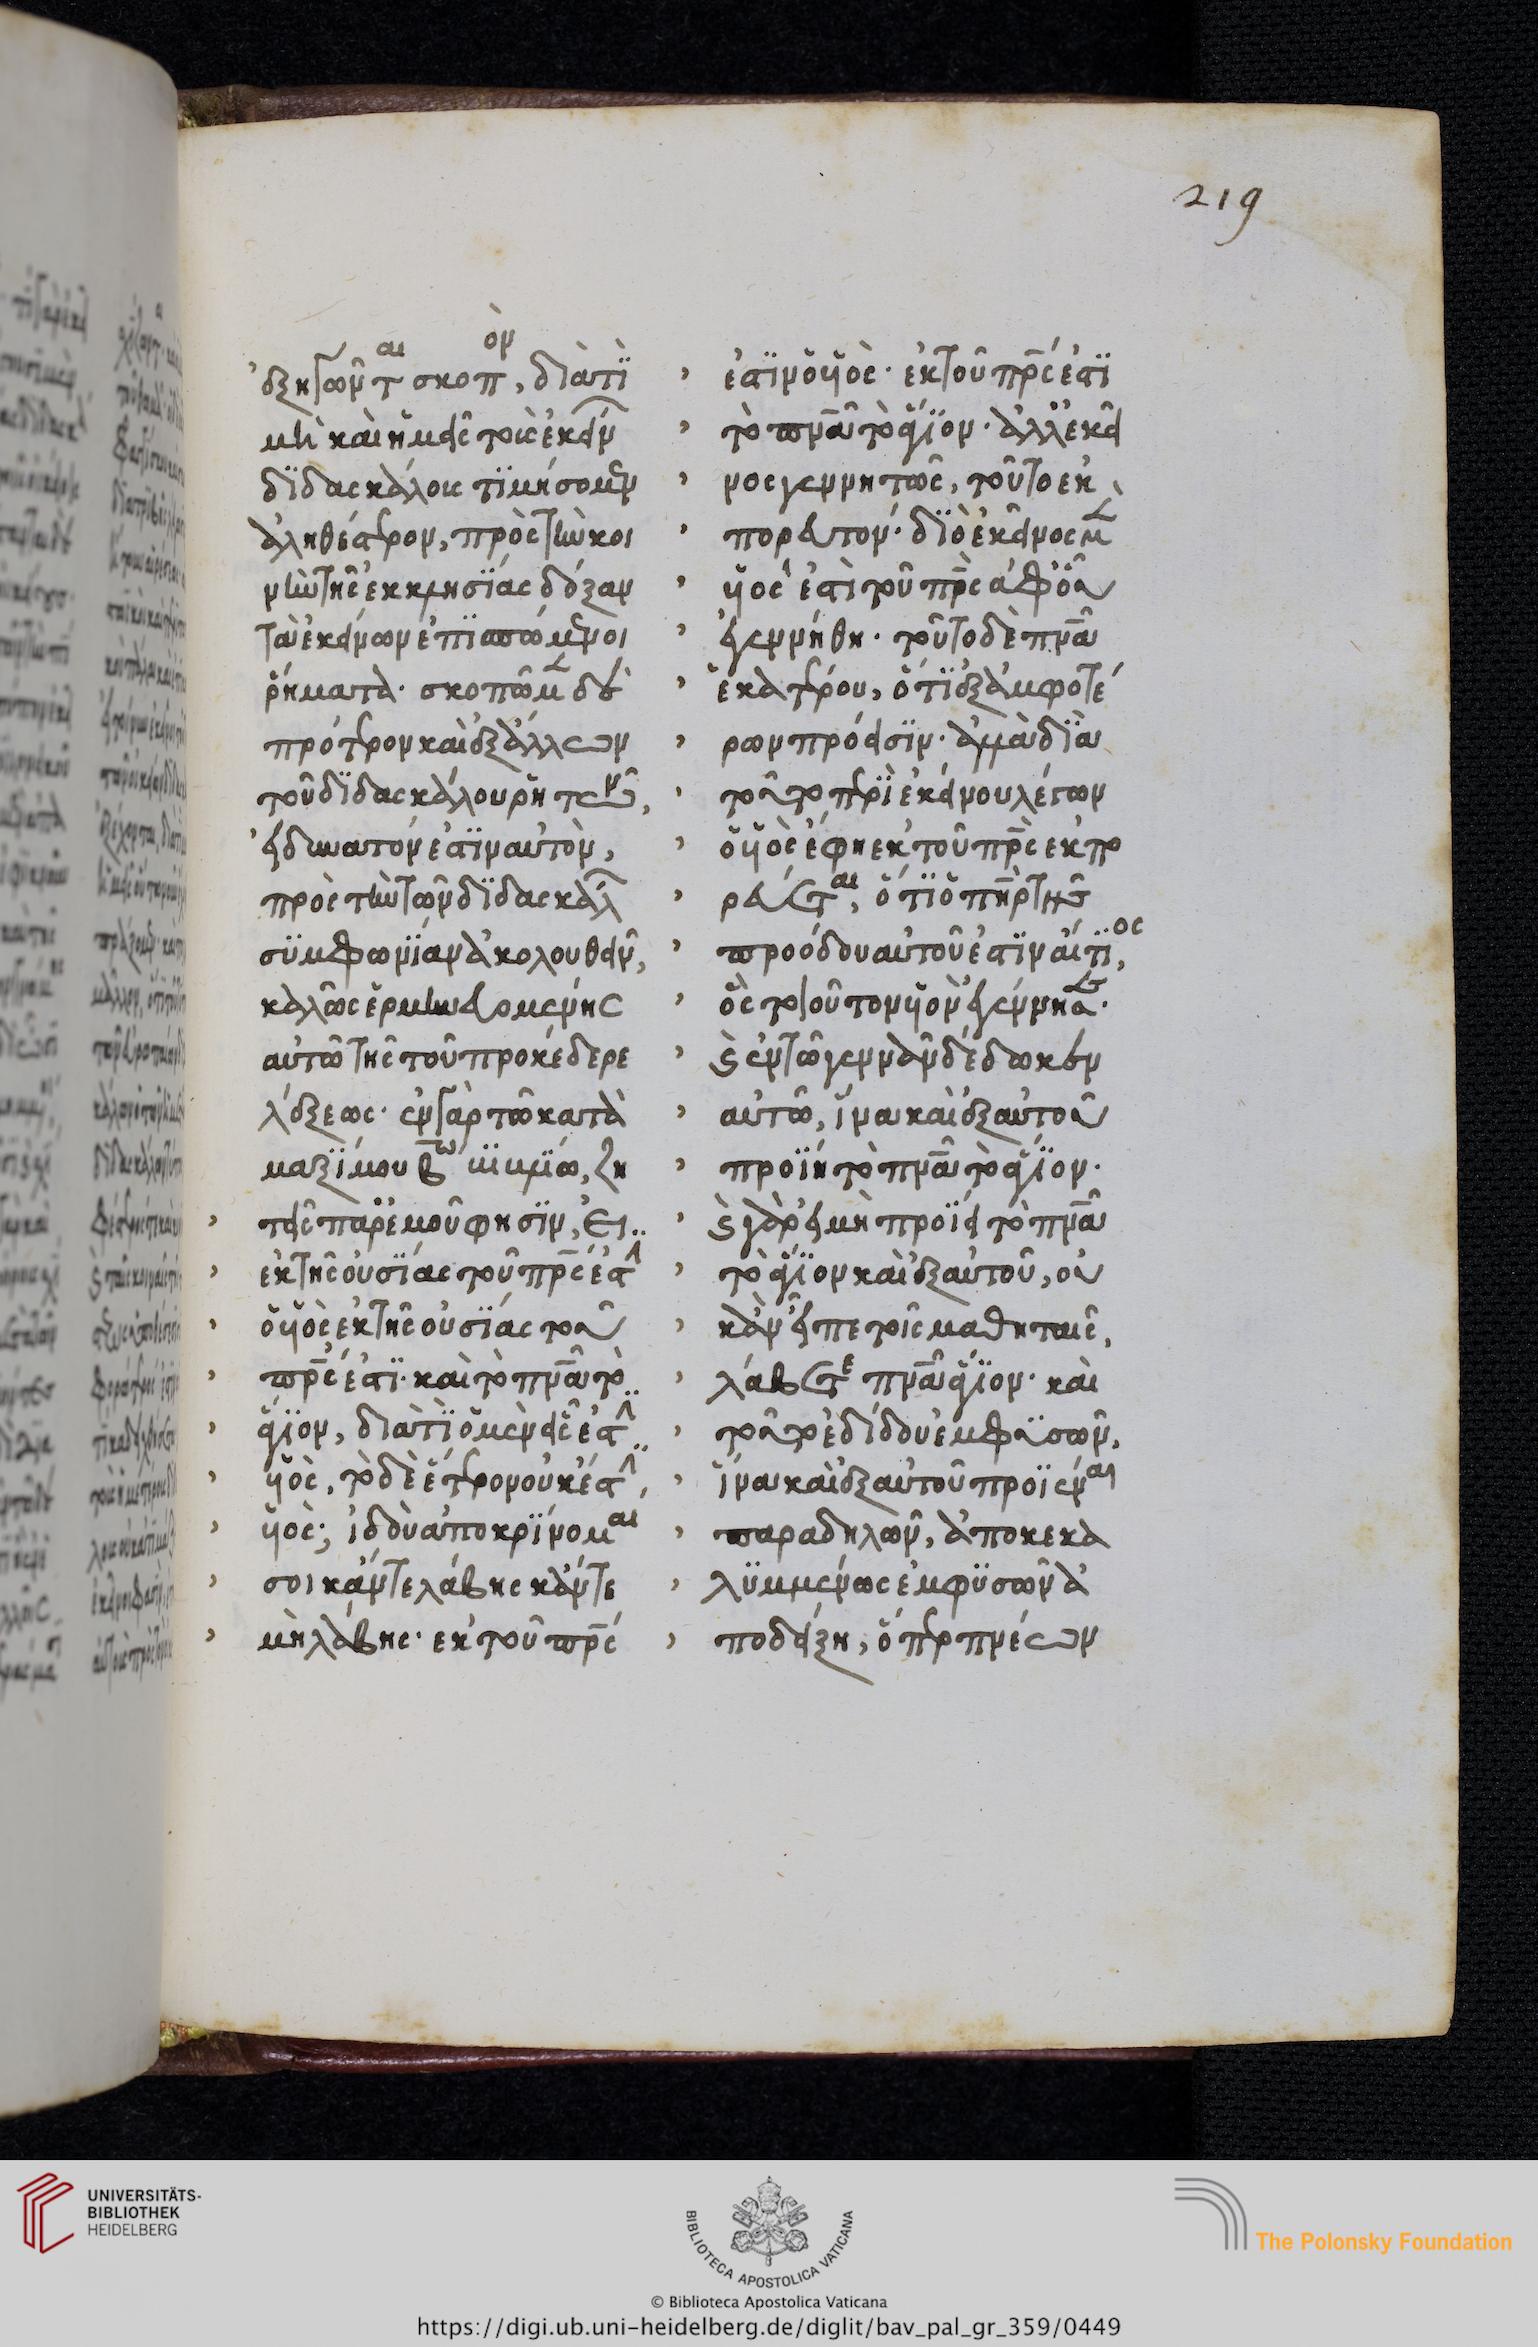 219
ἐξητῶντ(αι) σκοπ(ὸν), διατί
μὴ καὶ ἡμεῖς τοῖς ἐκείν
διδασκάλοις τιμήσομεν
ἀληθέστερον, πρὸς τὴν κοι
νὴν τῆς ἐκκλησίας δόξαν
τὰ ἐκείνων ἐπισπώμενοι
ῥήματα. σκοπῶμεν δὲ
πρότερον καὶ ἐξ ἄλλων
τοῦ διδασκάλου ῥητῶν,
εἰ δυνατόν ἐστιν αὐτὸν,
πρὸς τὴν τῶν διδασκάλ
συμφωνίαν ἀκολουθεῖν,
καλῶς ἑρμηνευομένης
αὐτῶ τῆς τοῦ προκέδερε
λέξεως. ἐν γὰρ τῶ κατὰ
μαξίμου βω κυνικῶ, ζη
τεῖς παρ' ἐμοῦ φησιν, Εἰ
ἐκ τῆς οὐσίας τοῦ πρς ἐστὶ
ὁ υἱὸς ἐκ τῆς οὐσίας τοῦ
πρς ἐστι. καὶ τὸ πνα τὸ
ἅγιον, διατί ὁ μὲν εἷς ἐστὶ
υἱὸς, τὸ δὲ ἕτερον οὐκ ἐστὶ,
υἱὸς; ἰδοὺ ἀποκρίνομαι
σοι κάν τε λάβης κάν τε
μὴ λάβης. ἐκ τοῦ πρς
ἐστιν ὁ υἱὸς. ἐκ τοῦ πρς ἐστι
τὸ πνα τὸ ἅγιον. ἀλλ' ἐκεῖ
νος γεννητῶς, τοῦτο ἐκ
πορευτόν. διὸ ἐκεῖνος μὲν
υἱὸς ἐστὶ τοῦ πρς ἀφ' οὗ
ἐγεννήθη. τοῦτο δὲ πνα
ἑκατέρου, ὅτι ἐξ ἀμφοτέ
ρων πρόεισιν. ἀλλὰ διὰ
τοῦτο περὶ ἐκείνου λέγων
ὁ υἱὸς ἔφη ἐκ τοῦ πρς ἐκπο
ρεύεται, ὅτι ὁ πὴρ τῆς
προόδου αὐτοῦ ἐστιν αἴτιος,
ὃς τοιοῦτον υἱὸν ἐγέννησεν.
καὶ ἐν τῶ γεννᾶν δέδωκεν
αὐτῶ, ἵνα καὶ ἐξ αὐτοῦ
προΐη τὸ πνα τὸ ἅγιον.
καὶ γὰρ εἰ μὴ προΐει τὸ πνα
τὸ ἅγιον καὶ ἐξ αὐτοῦ, οὐ
κὰν εἶπε τοῖς μαθηταῖς,
λάβετε πνα ἅγιον. καὶ
τοῦτο ἐδίδου ἐμφυσῶν,
ἵνα καὶ ἐξ αὐτοῦ προϊέναι
παραδηλῶν, ἀποκεκα
λυμμένως ἐμφυσῶν ἀ
ποδείξη, ὅπερ πνέων
UNIVERSITÄTS-
BIBLIOTHEK
HEIDELBERG
BIBLIOTECA APOSTOLICA VATICANA
The Polonsky Foundation
© Biblioteca Apostolica Vaticana
https://digi.ub.uni-heidelberg.de/diglit/bav_pal_gr_359/0449